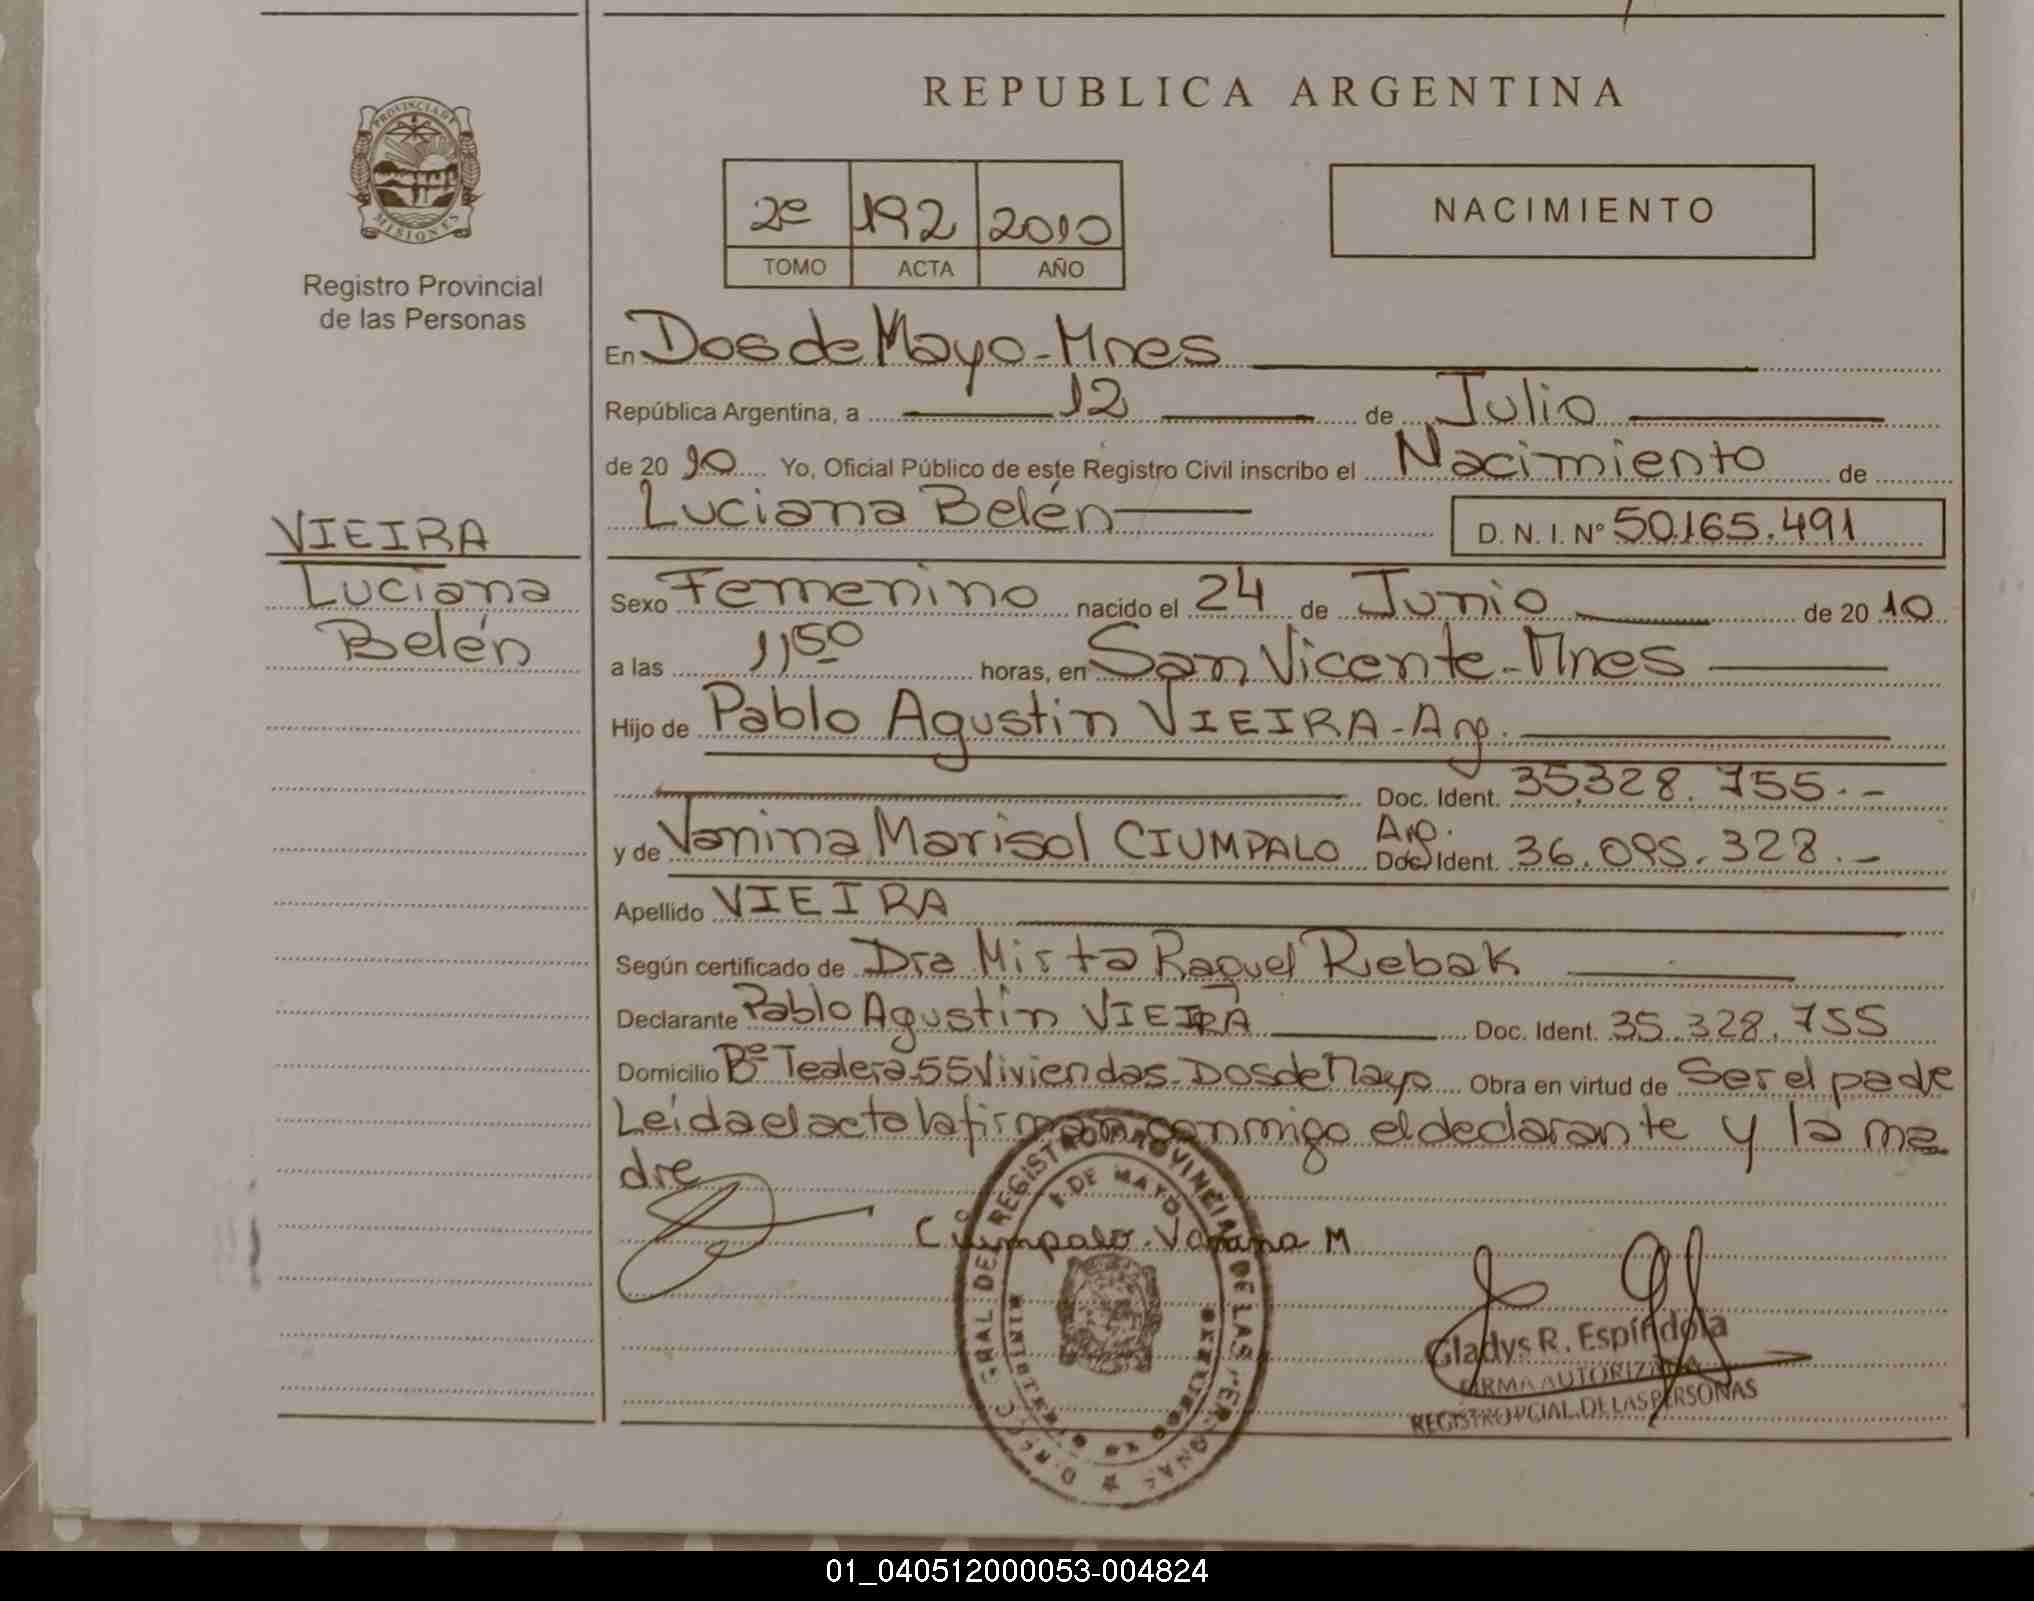 REPUBLICA ARGENTINA
PROVINCIA DE
MISIONES
Registro Provincial
de las Personas
2º 192 2010
TOMO ACTA AÑO
NACIMIENTO
En Dos de Mayo - Mnes
República Argentina, a 12 de Julio
de 20 10 Yo, Oficial Público de este Registro Civil inscribo el Nacimiento de
Luciana Belén D. N. I. Nº 50.165.491
VIEIRA
Luciana
Belén
Sexo Femenino nacido el 24 de Junio de 20 10
a las 11,50 horas, en San Vicente - Mnes
Hijo de Pablo Agustin VIEIRA - Arg.
Doc. Ident. 35.328.755.-
y de Vanina Marisol CIUMPALO Arg. Doc. Ident. 36.095.328.-
Apellido VIEIRA
Según certificado de Dra Mirta Raquel Riebak
Declarante Pablo Agustin VIEIRA Doc. Ident. 35.328.755
Domicilio Bº Tealera 55 Viviendas - Dos de Mayo Obra en virtud de Ser el padre
Leida el acta la firman conmigo el declarante y la ma
dre
Ciumpalo Vanina M
REGISTRO PROVINCIAL DE LAS PERSONAS
2 DE MAYO
Gladys R. Espíndola
FIRMA AUTORIZADA
REGISTRO PCIAL. DE LAS PERSONAS
01_040512000053-004824